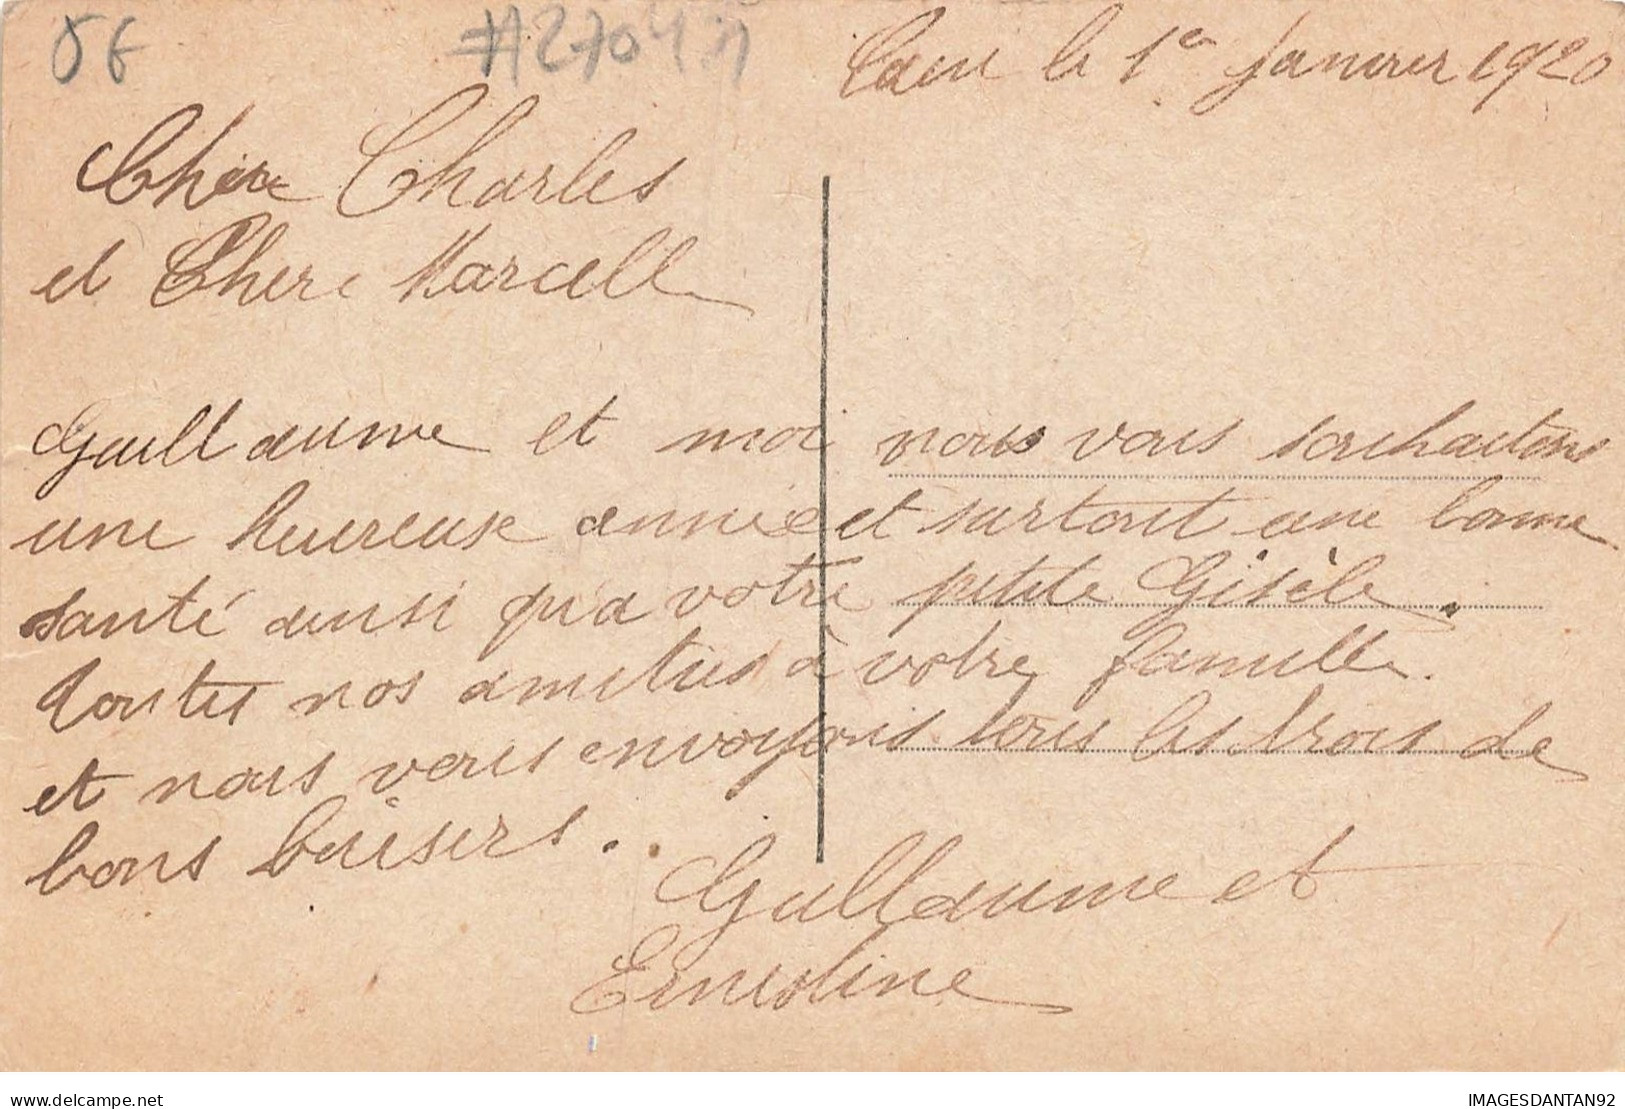 5€
#270431
Caen le 1er Janvier 1920
Chère Charles
et Chere Marcelle
Guilldaume et moi nous vous souhaitons
une huereuse année et surtout une bonne
santé ainsi qu'a votre petite Gisèle.
toutes nos amitiés à votre famille.
et nous vous envoyons tous les trois de
bons baisers.
Guilldaume et
Ernestine
www.delcampe.net
IMAGESDANTAN92